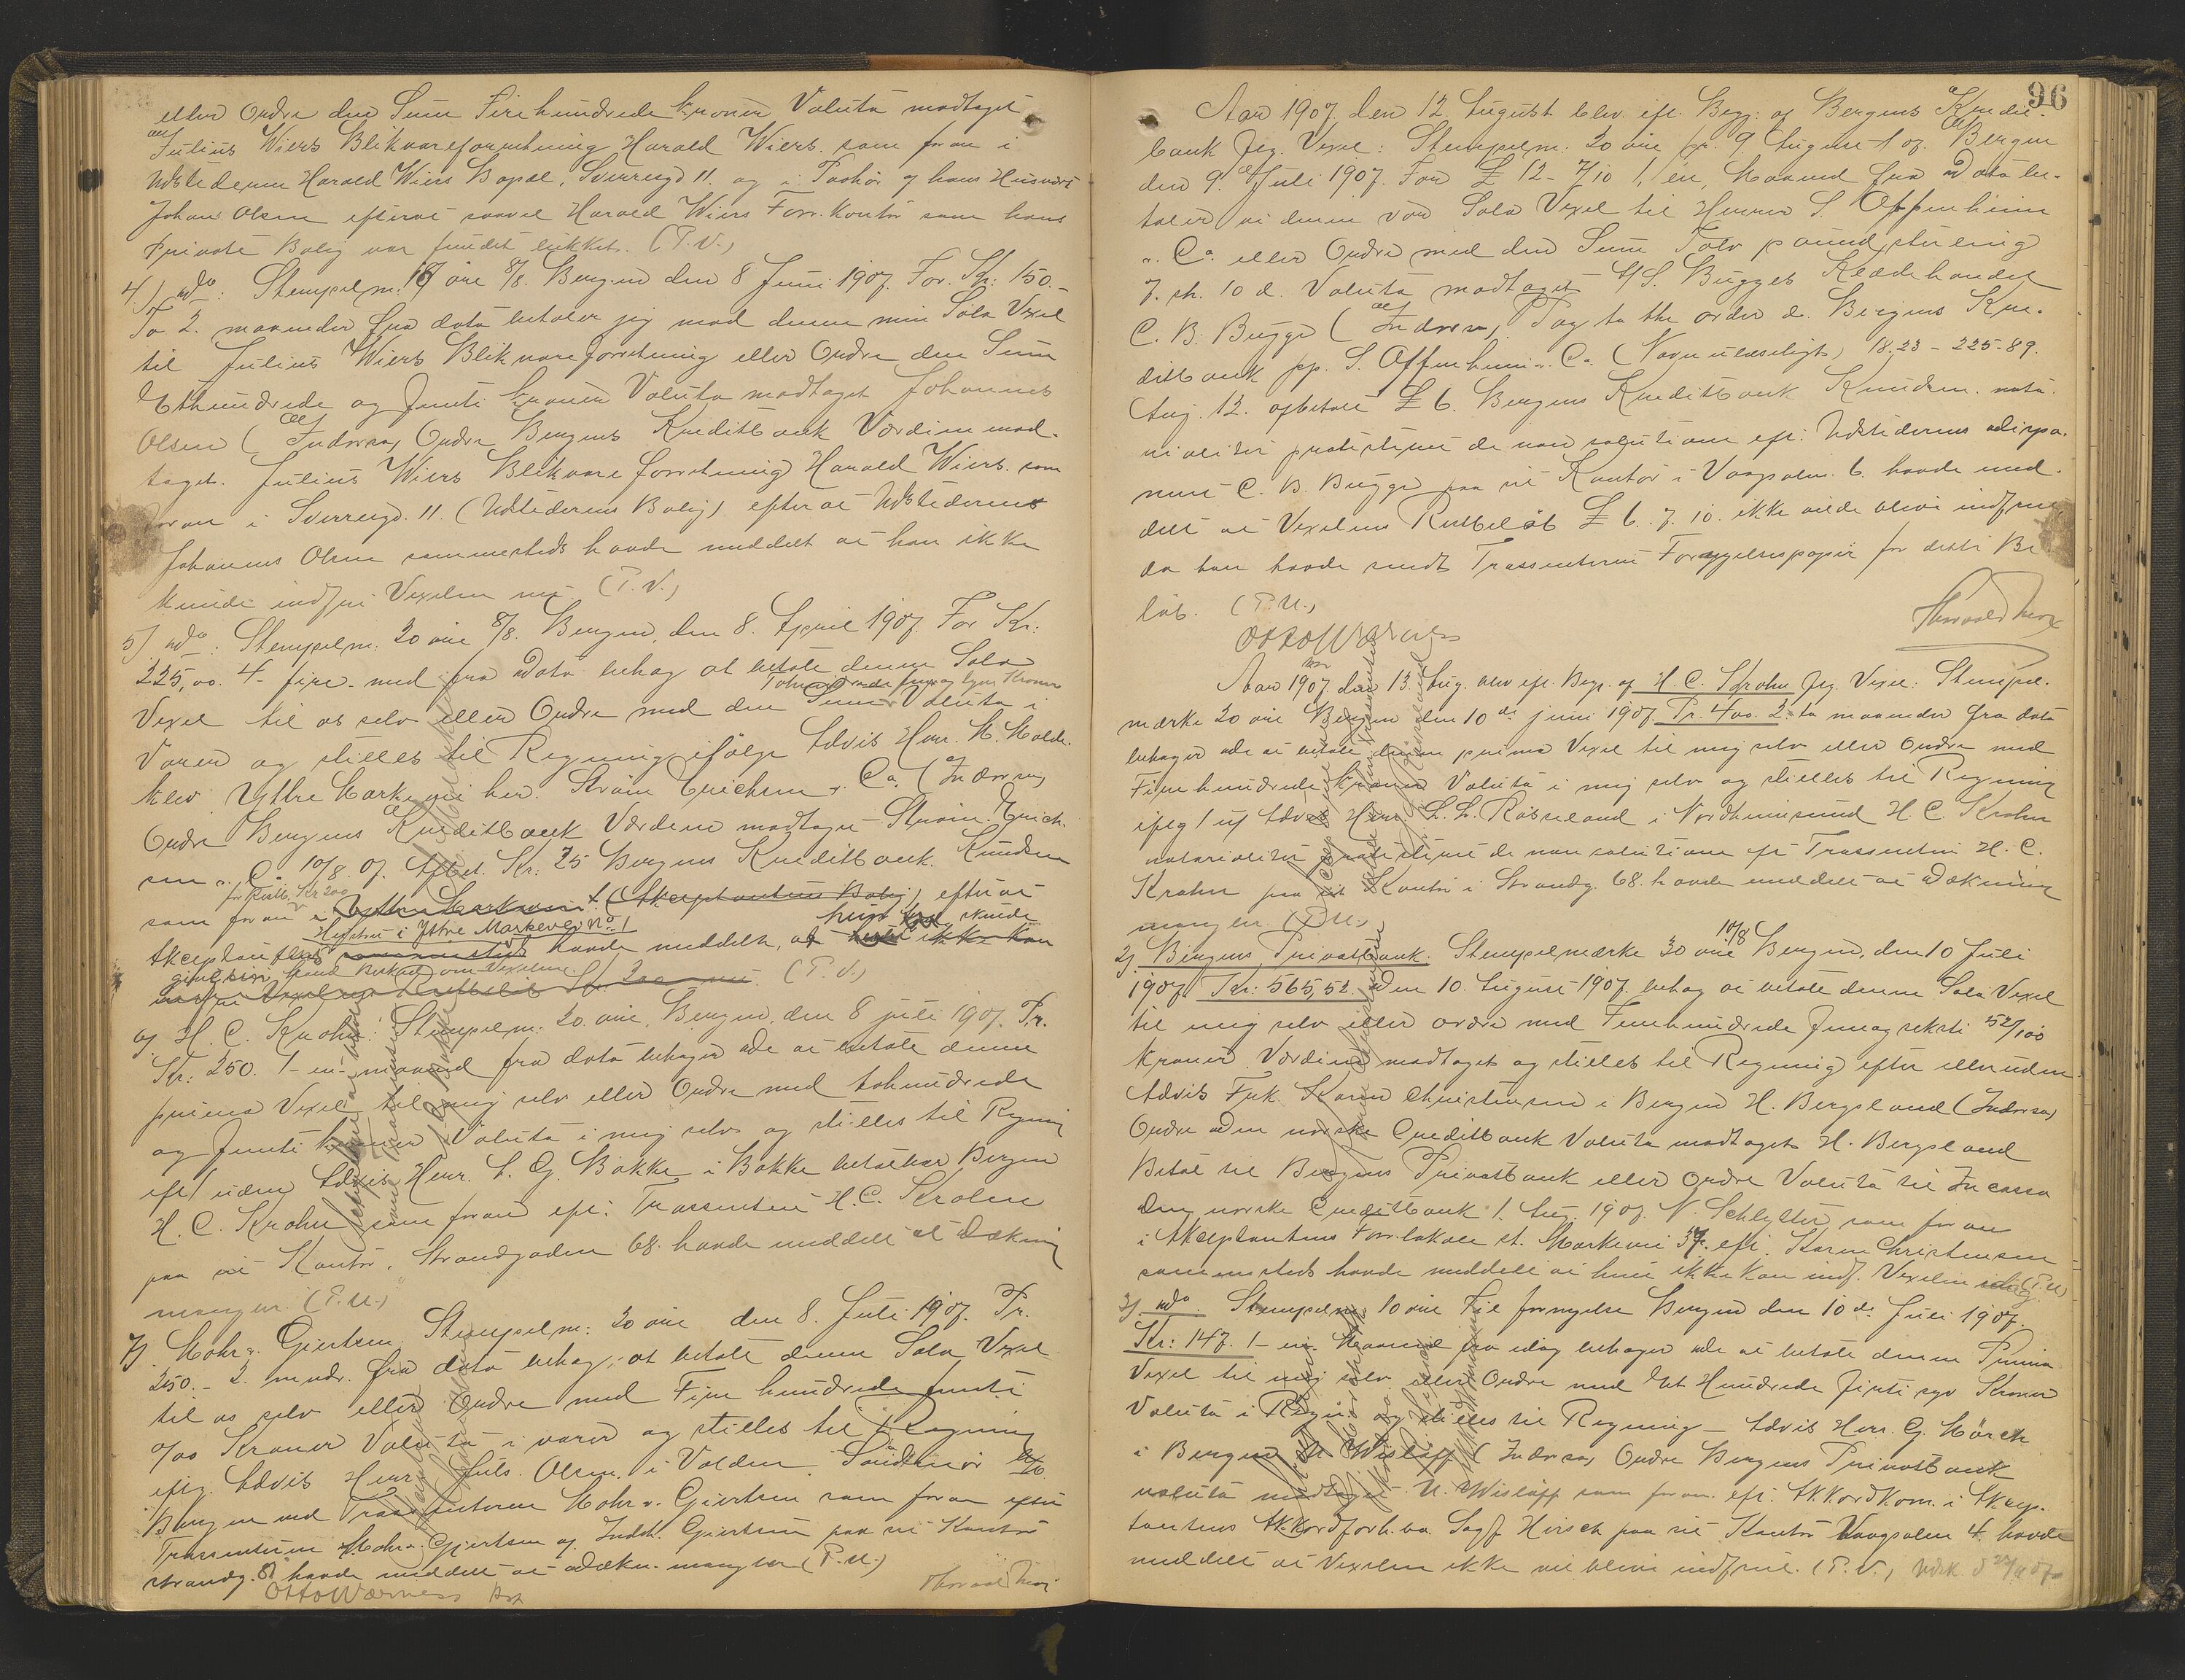 eller Ordre den Sum Firehundrede Kroner Valuta modtaget
Julius Wiers Blikvareforretning Harald Wiers. som foran i
Udstederen Harald Wiers Bopæl, Sverresgd 11. og i Paahør af hans Husvært
Johan Olsen efterat saavel Harald Wiers Forr. Kontor som hans
private Bolig var fundet lukket. (P.V.)
4.) do: Stempelm. 10 øre 8/8. Bergen den 8 Juni 1907. For Kr: 150.-
To 2. maaneder fra dato betaler jeg mod denne min Sola Vexel
til Julius Wiers Blikvareforretning eller Ordre den Sum
Ethundrede og femti Kroner Valuta modtaget Johannes
Olsen (Indorsa, Ordre Bergens Kreditbank Værdien mod-
taget. Julius Wiers Blikvareforretning Harald Wiers. som
foran i Sverresgd. 11. (Udstederens Bolig) efterat Udstederen
Johannes Olsen sammesteds havde meddelt at han ikke
kunde indfri Vexelen nu. (P.V.)
5) do: Stempelm: 20 øre 8/8. Bergen, den 8. April 1907. For Kr:
225,00. 4- fire- mdr fra Dato behag at betale denne Sola
Tohundrede fem og tyve Kroner
Vexel til os selv eller Ordre med den Sum Valuta i
Varer og stilles til Regning ifølge Advis Herr. M. Molde.
klev Yttre Markevei her. Strøm Erichsen & Co. (Indorsa,
Ordre Bergens Kreditbank Værdien modtaget Strøm. Erich-
sen & Co. 10/8. 07. Afbet. Kr: 25 Bergens Kreditbank. Knudsen
for Restb. Kr 200
som foran i Yttre Markevei 1. (Akceptantens Bolig) efterat
Hustru i Ytre Markevei No 1 hun skulde
Akceptantens sammesteds havde meddelt, at ikke kan
give sin Mand Besked om Vexelen.
indfri Vexelens Restbeløb Kr. 200 nu. (P.V.)
6) H. C. Krohn: Stempelm: 20 øre, Bergen, den 8 juli 1907. Pr.
Kr: 250. 1- en- maaned fra dato behager De at betale denne
prima Vexel til mig selv eller Ordre med tohundrede
og femti kroner Valuta i mig selv og stilles til Regning
eft/ uden Advis Herr. L. G. Bakke i Bakke betalbar Bergen
H. C. Krohn som foran eft. Trassenten H.C. Krohn
paa sit Kontor, Strandgaden 68. havde meddelt at Dækning
mangler. (P.U.)
7) Mohr & Gjertsen. Stempelm: 20 øre den 8. Juli 1907. Pr.
250.- 2. mndr. fra dato behag. at betale denne Sola Vexel
til os selv eller Ordre med Fire hundrede femti
0/00 Kroner Valuta i varer og stilles til Regning
iflg. Advis Herr Juls. Olsen, i Volden, Søndmør
Bergen ved Trassenterne Mohr & Gjertsen som foran efter
Trassenterne Mohr & Gjertsen og Indeh. Gjertsen paa sit Kontor
Strandg. 81 havde meddelt at Dækn. mangler (P.U.)
Otto Wærness
96
Aar 1907. den 12 August blev eft. Beg: af Bergens Kredit-
bank Jeg. Vexel: Stempelm: 20 øre pr. 9 August 1907. Bergen
den 9. Juli 1907. For £ 12- 7/10 1, en, Maaned fra Dato be-
taler vi denne vor Sola Vexel til Herrer S. Oppenheim
& Co. eller Ordre med den Sum Tolv pound sterling
7. sh. 10 d. Valuta modtaget H/S. Bugges Klædehandel
C. B. Bugge (Indorsa, Pay to the order d. Bergens Kre-
ditbank pp. S. Oppenheim & Co. (Navn ulæseligt) 18.23- 225-89.
Aug. 12. afbetalt £ 6. Bergens Kreditbank Knudsen. nota-
rialiter protesteret de non solutione eft. Udstederens
C. B. Bugge paa sit Kontor i Vaagsalm. 6. havde med-
delt at Vexelens Restbeløb £ 6. 7. 10. ikke vilde blive indfriet,
da han havde sendt Trassenterne Fornyelsespapir for dette Be-
løb. (P.U.)
Otto Wærness
Aar 1907 den 13. Aug. blev eft. Begj. af H. C. Krohn Jeg. Vexel: Stempel-
mærke 20 øre Bergen den 10de juni 1907. Pr. 400. 2. to maaneder fra dato
behager De at betale denne prima Vexel til mig selv eller Ordre med
Firehundrede kroner Valuta i mig selv og stilles til Regning
iflg / uf Advis Herr. L. L. Røsseland i Nordheimsund H. C. Krohn
notarialiter protesteret de non solutione eft Trassenten H. C.
Krohn paa sit Kontor i Strandg. 68. havde meddelt at Dækning
mangler (P.U.)
2) Bergens Privatbank. Stempelmærke 30 øre 10/8 Bergen, den 10 Juli
1907. Kr: 565,52. Den 10. August 1907. behag at betale denne Sola Vexel
til mig selv eller ordre med Femhundrede femogseksti 52/100
kroner. Værdien modtaget og stilles til Regning efter eller uden
Advis Frk. Karen Christensen i Bergen H. Bergsland (Indorsa)
Ordre Den norske Creditbank Valuta modtaget H. Bergsland
Betal til Bergens Privatbank eller Ordre Valuta til Incasso
Den norske Creditbank 1. Aug. 1907. N. Schlytter, som foran
i Akceptantens Forr. lokale st. Markevei 37. eft. Karen Christensen
sammesteds havde meddelt at hun ikke kan indf. Vexelen idag (P.U)
3) do. Stempelm: 10 øre Til fornyelse Bergen den 10de Juli 1907.
Kr: 147. 1- en. Maaned fra idag behager De at betale denne Prima
Vexel til mig selv eller Ordre med Et Hundrede firti syv Kroner
Valuta i Regn. og stilles til Regning - Advis Herr. G. Mørch
i Bergen N. Wisløff (Indorsa, Ordre Bergens Privatbank
valuta modtaget N. Wisløff som foran. eft. Akkordkom. i Akcep-
tantens Akkordforh. va Sagf. Hirsch paa sit Kontor Vaagsalm. 4. havde
meddelt at Vexelen ikke vil blive indfriet. (P.V.)